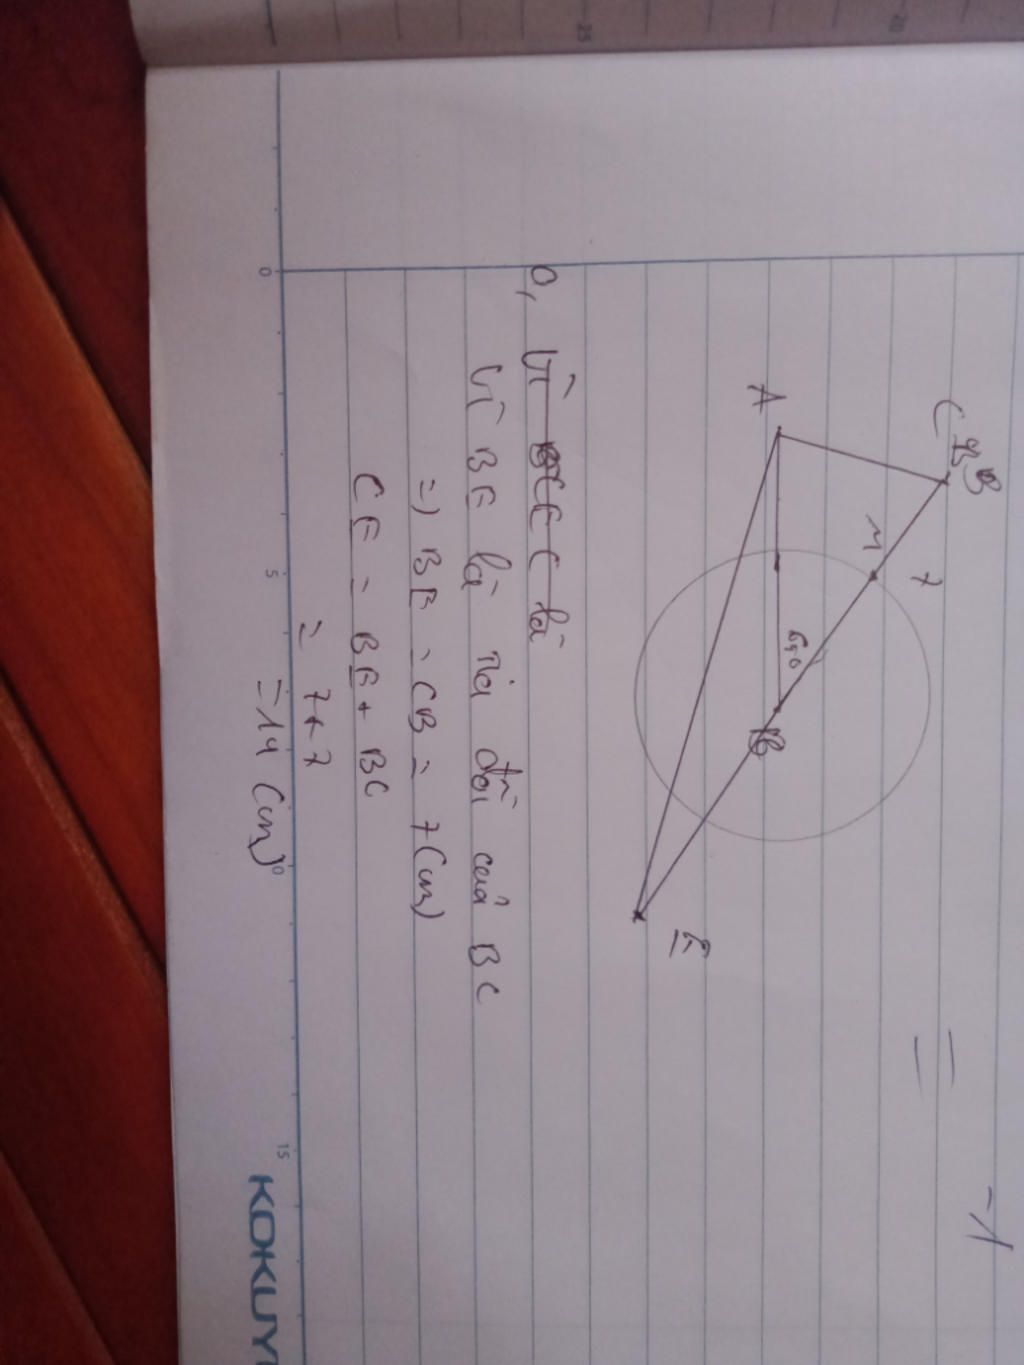 -1
=
C B B
7
M
A
65°
B
E
a, Vì BCE C là
Vì BE là tia đối của BC
=) BE = CB = 7 (cm)
CE = BE + BC
= 7+7
= 14 (cm)
0 5 10 15
20 25
KOKUY